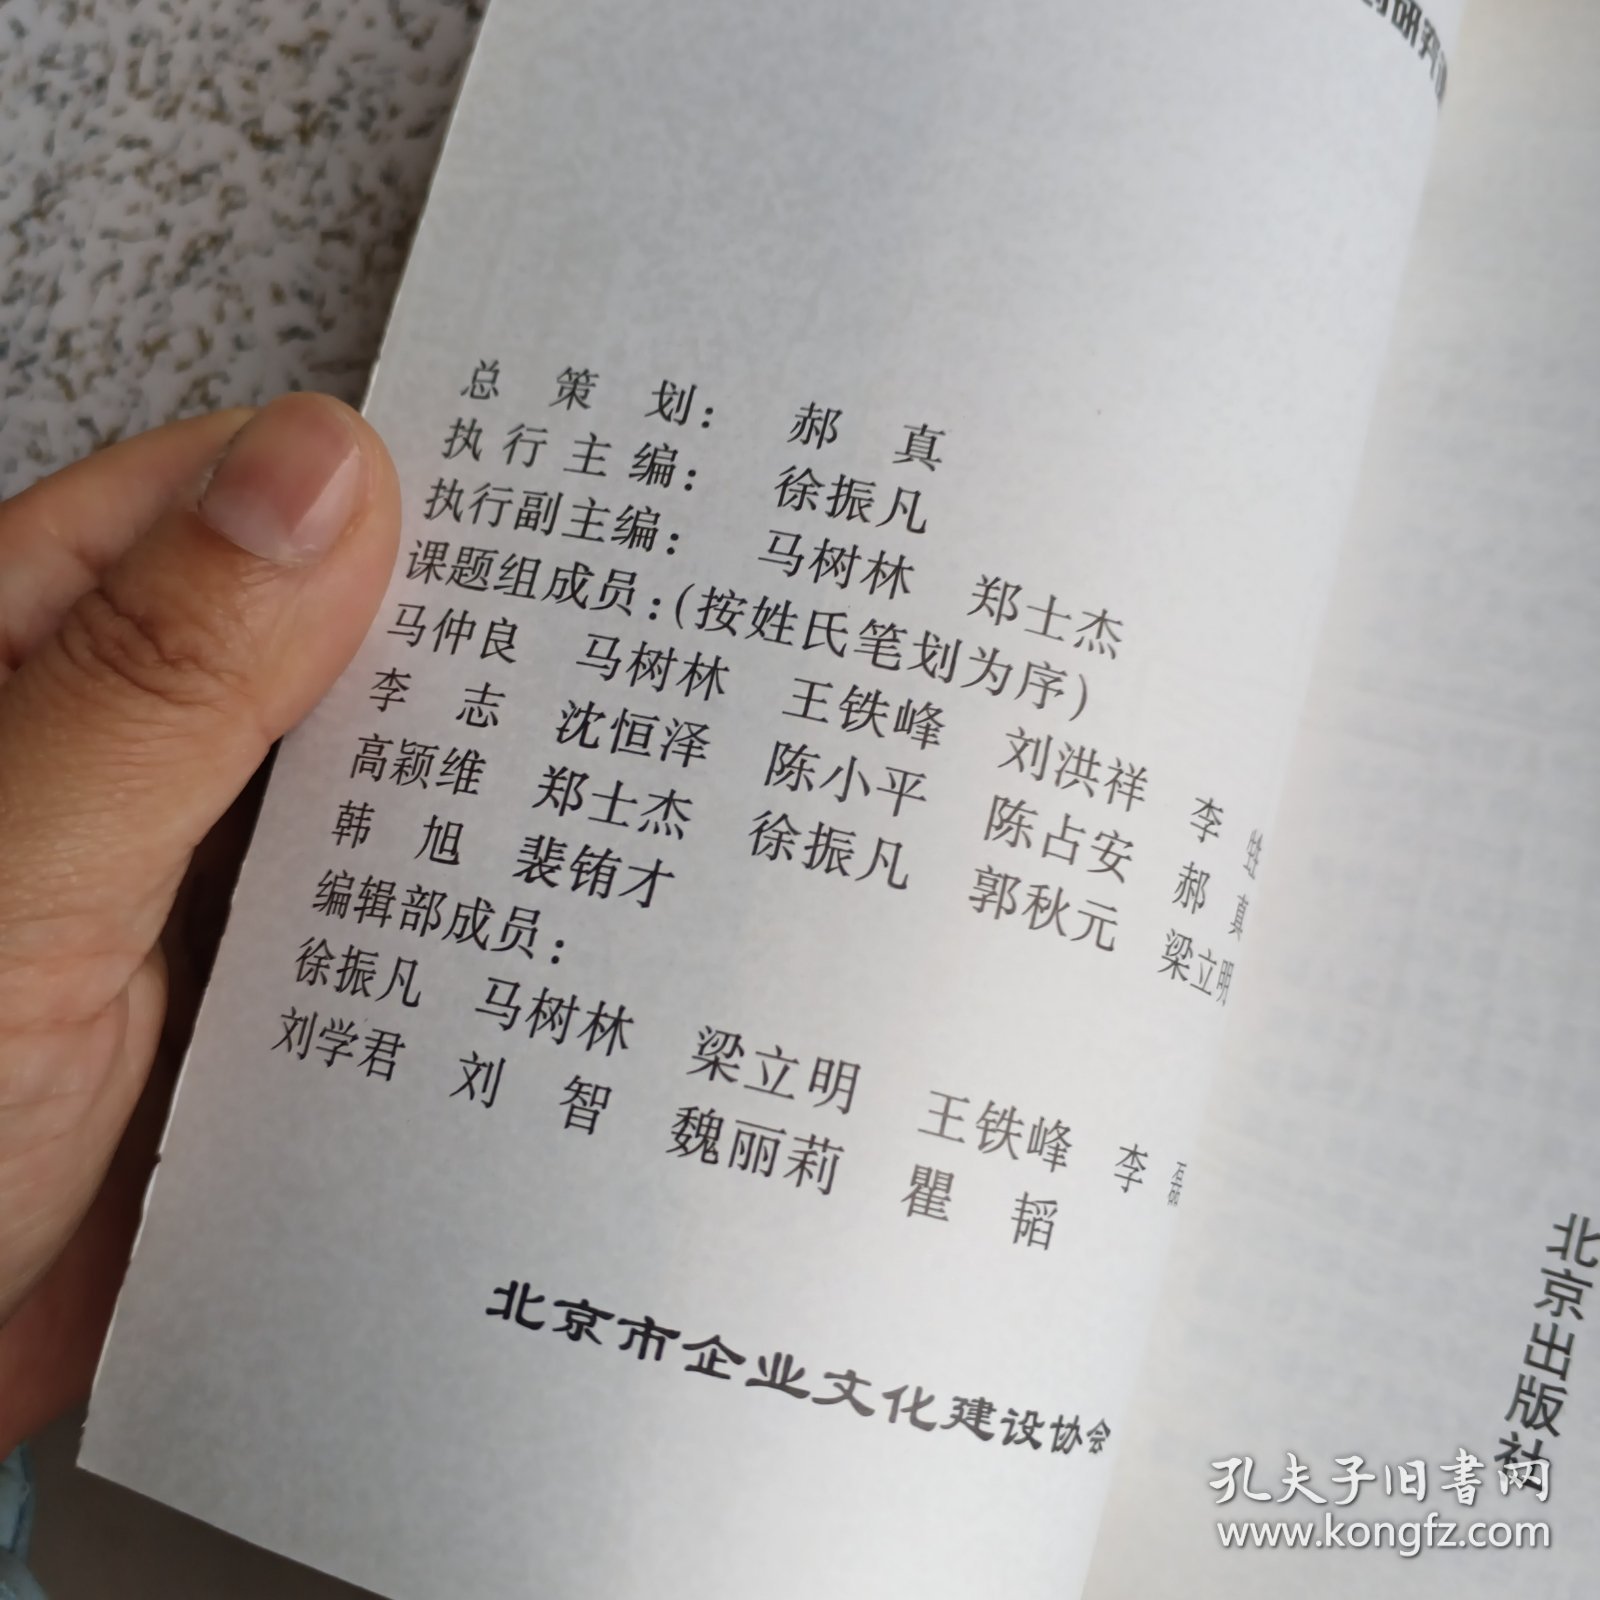 总策划：郝真
执行主编：徐振凡
执行副主编：马树林 郑士杰
课题组成员：（按姓氏笔划为序）
马仲良 马树林 王铁峰 刘洪祥 李
李志 沈恒泽 陈小平 陈占安 郝真
高颖维 郑士杰 徐振凡 郭秋元 梁立明
韩旭 裴铕才
编辑部成员：
徐振凡 马树林 梁立明 王铁峰 李
刘学君 刘智 魏丽莉 瞿韬
北京市企业文化建设协会
北京出版社
孔夫子旧书网
www.kongfz.com